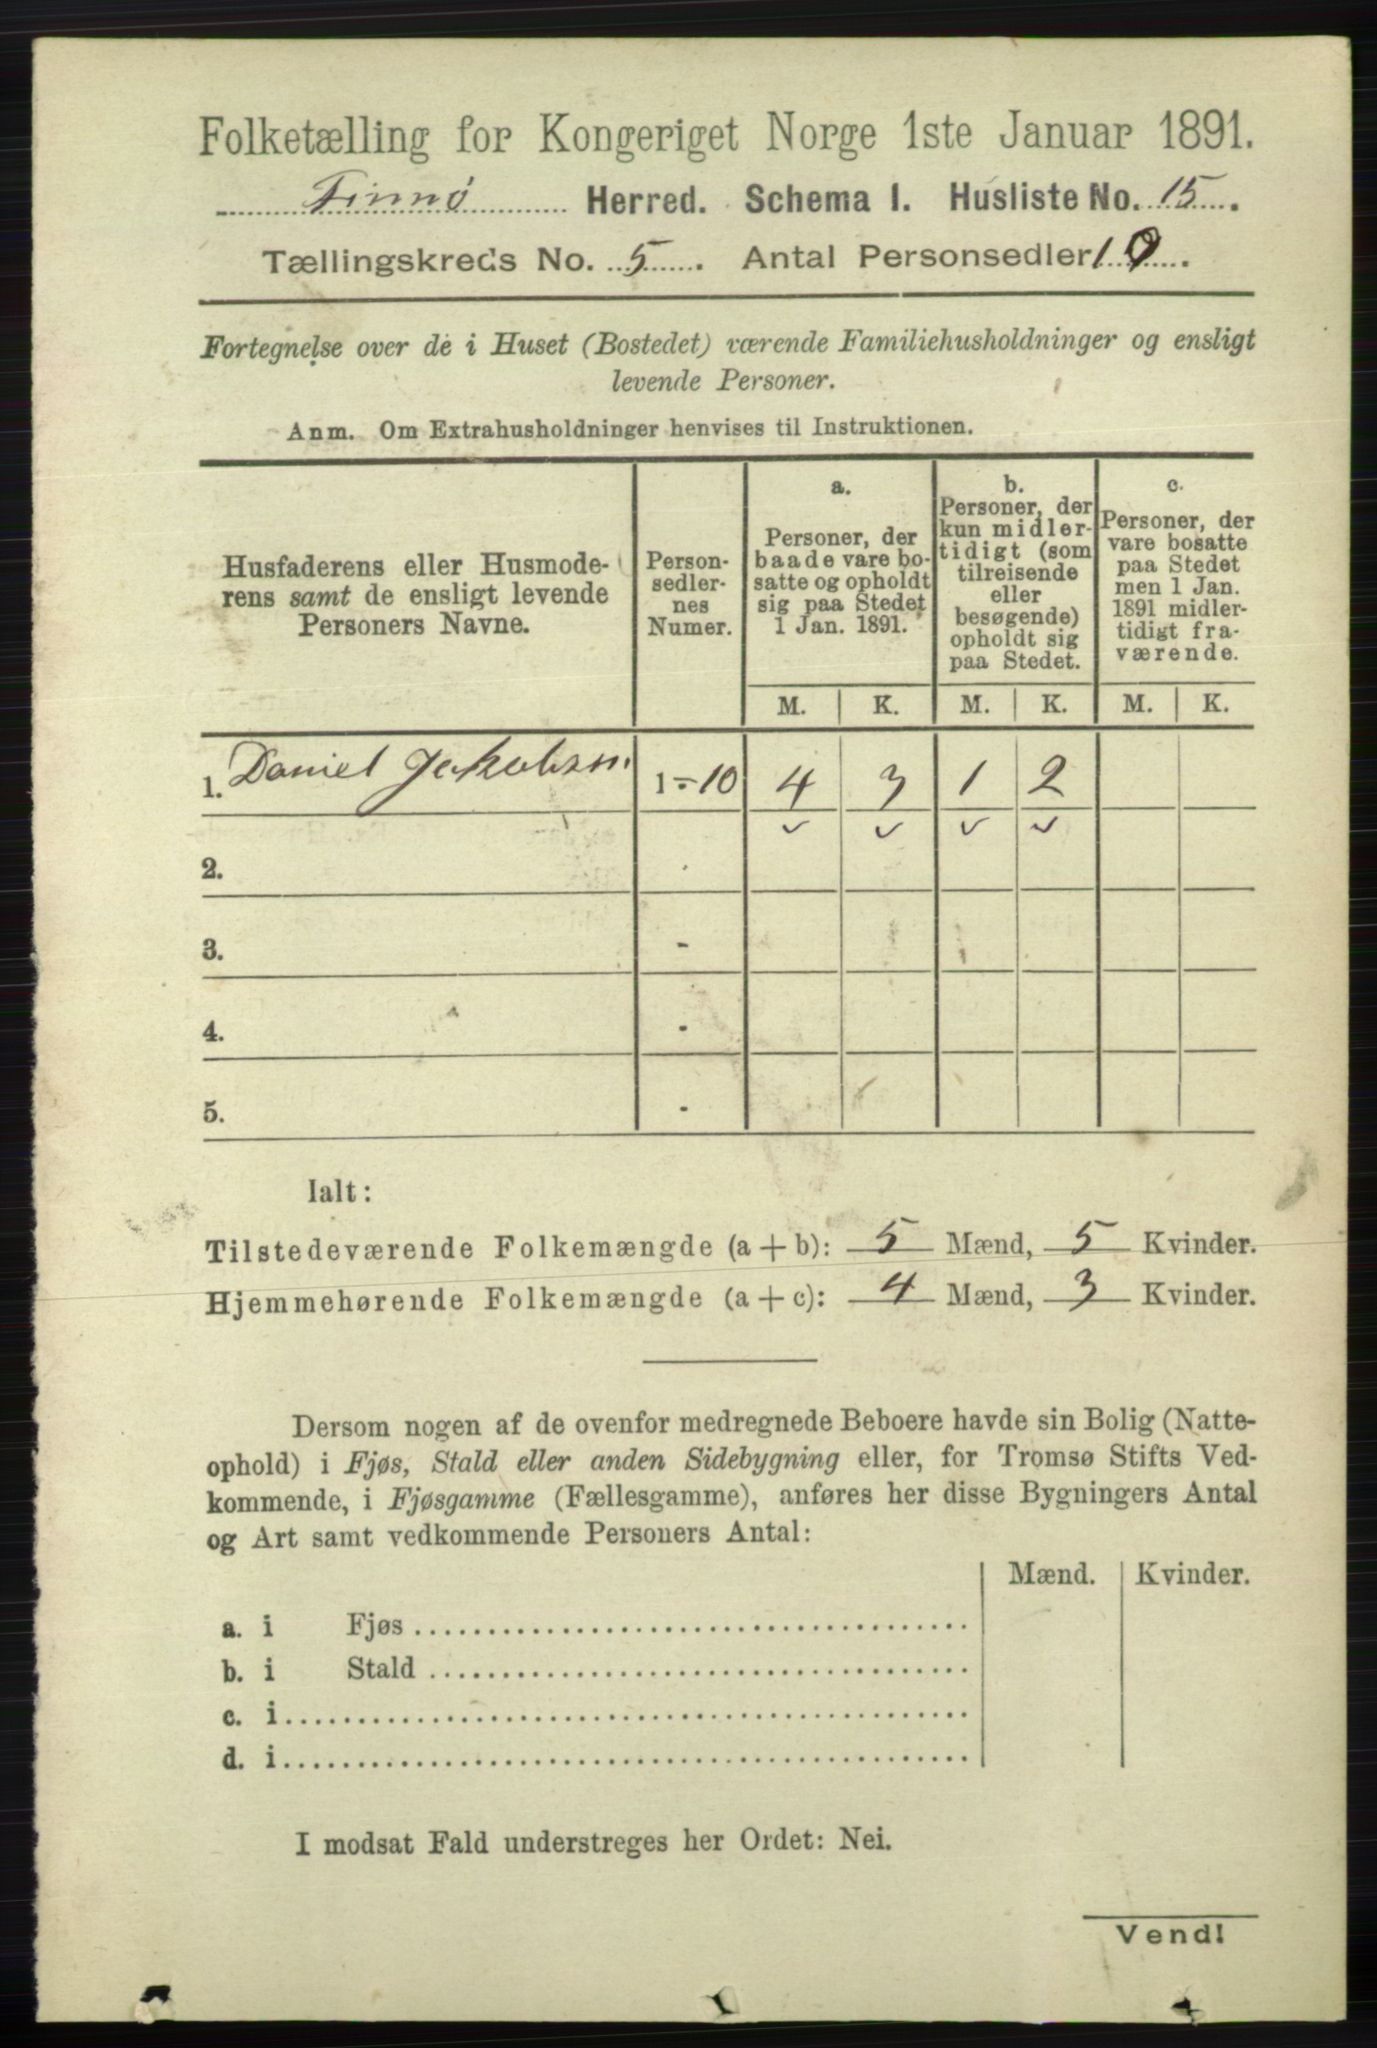 Folketælling for Kongeriget Norge 1ste Januar 1891.
Finnø Herred. Schema I. Husliste No. 15.
Tællingskreds No. 5. Antal Personsedler 10.
Fortegnelse over de i Huset (Bostedet) værende Familiehusholdninger og ensligt
levende Personer.
Anm. Om Extrahusholdninger henvises til Instruktionen.
Husfaderens eller Husmode-
rens samt de ensligt levende
Personers Navne.
Person-
sedler-
nes
Numer.
a.
Personer, der
baade vare bo-
satte og opholdt
sig paa Stedet
1 Jan. 1891.
b.
Personer, der
kun midler-
tidigt (som
tilreisende
eller
besøgende)
opholdt sig
paa Stedet.
c.
Personer, der
vare bosatte
paa Stedet
men 1 Jan.
1891 midler-
tidigt fra-
værende.
M. K. M. K. M. K.
1. Daniel Jakobsen 1-10 4 3 1 2
2.
3. -
4. -
5. -
Ialt:
Tilstedeværende Folkemængde (a + b): 5 Mænd, 5 Kvinder.
Hjemmehørende Folkemængde (a + c): 4 Mænd, 3 Kvinder.
Dersom nogen af de ovenfor medregnede Beboere havde sin Bolig (Natte-
ophold) i Fjøs, Stald eller anden Sidebygning eller, for Tromsø Stifts Ved-
kommende, i Fjøsgamme (Fællesgamme), anføres her disse Bygningers Antal
og Art samt vedkommende Personers Antal:
Mænd. Kvinder.
a. i Fjøs
b. i Stald
c. i
d. i
I modsat Fald understreges her Ordet: Nei.
Vend!